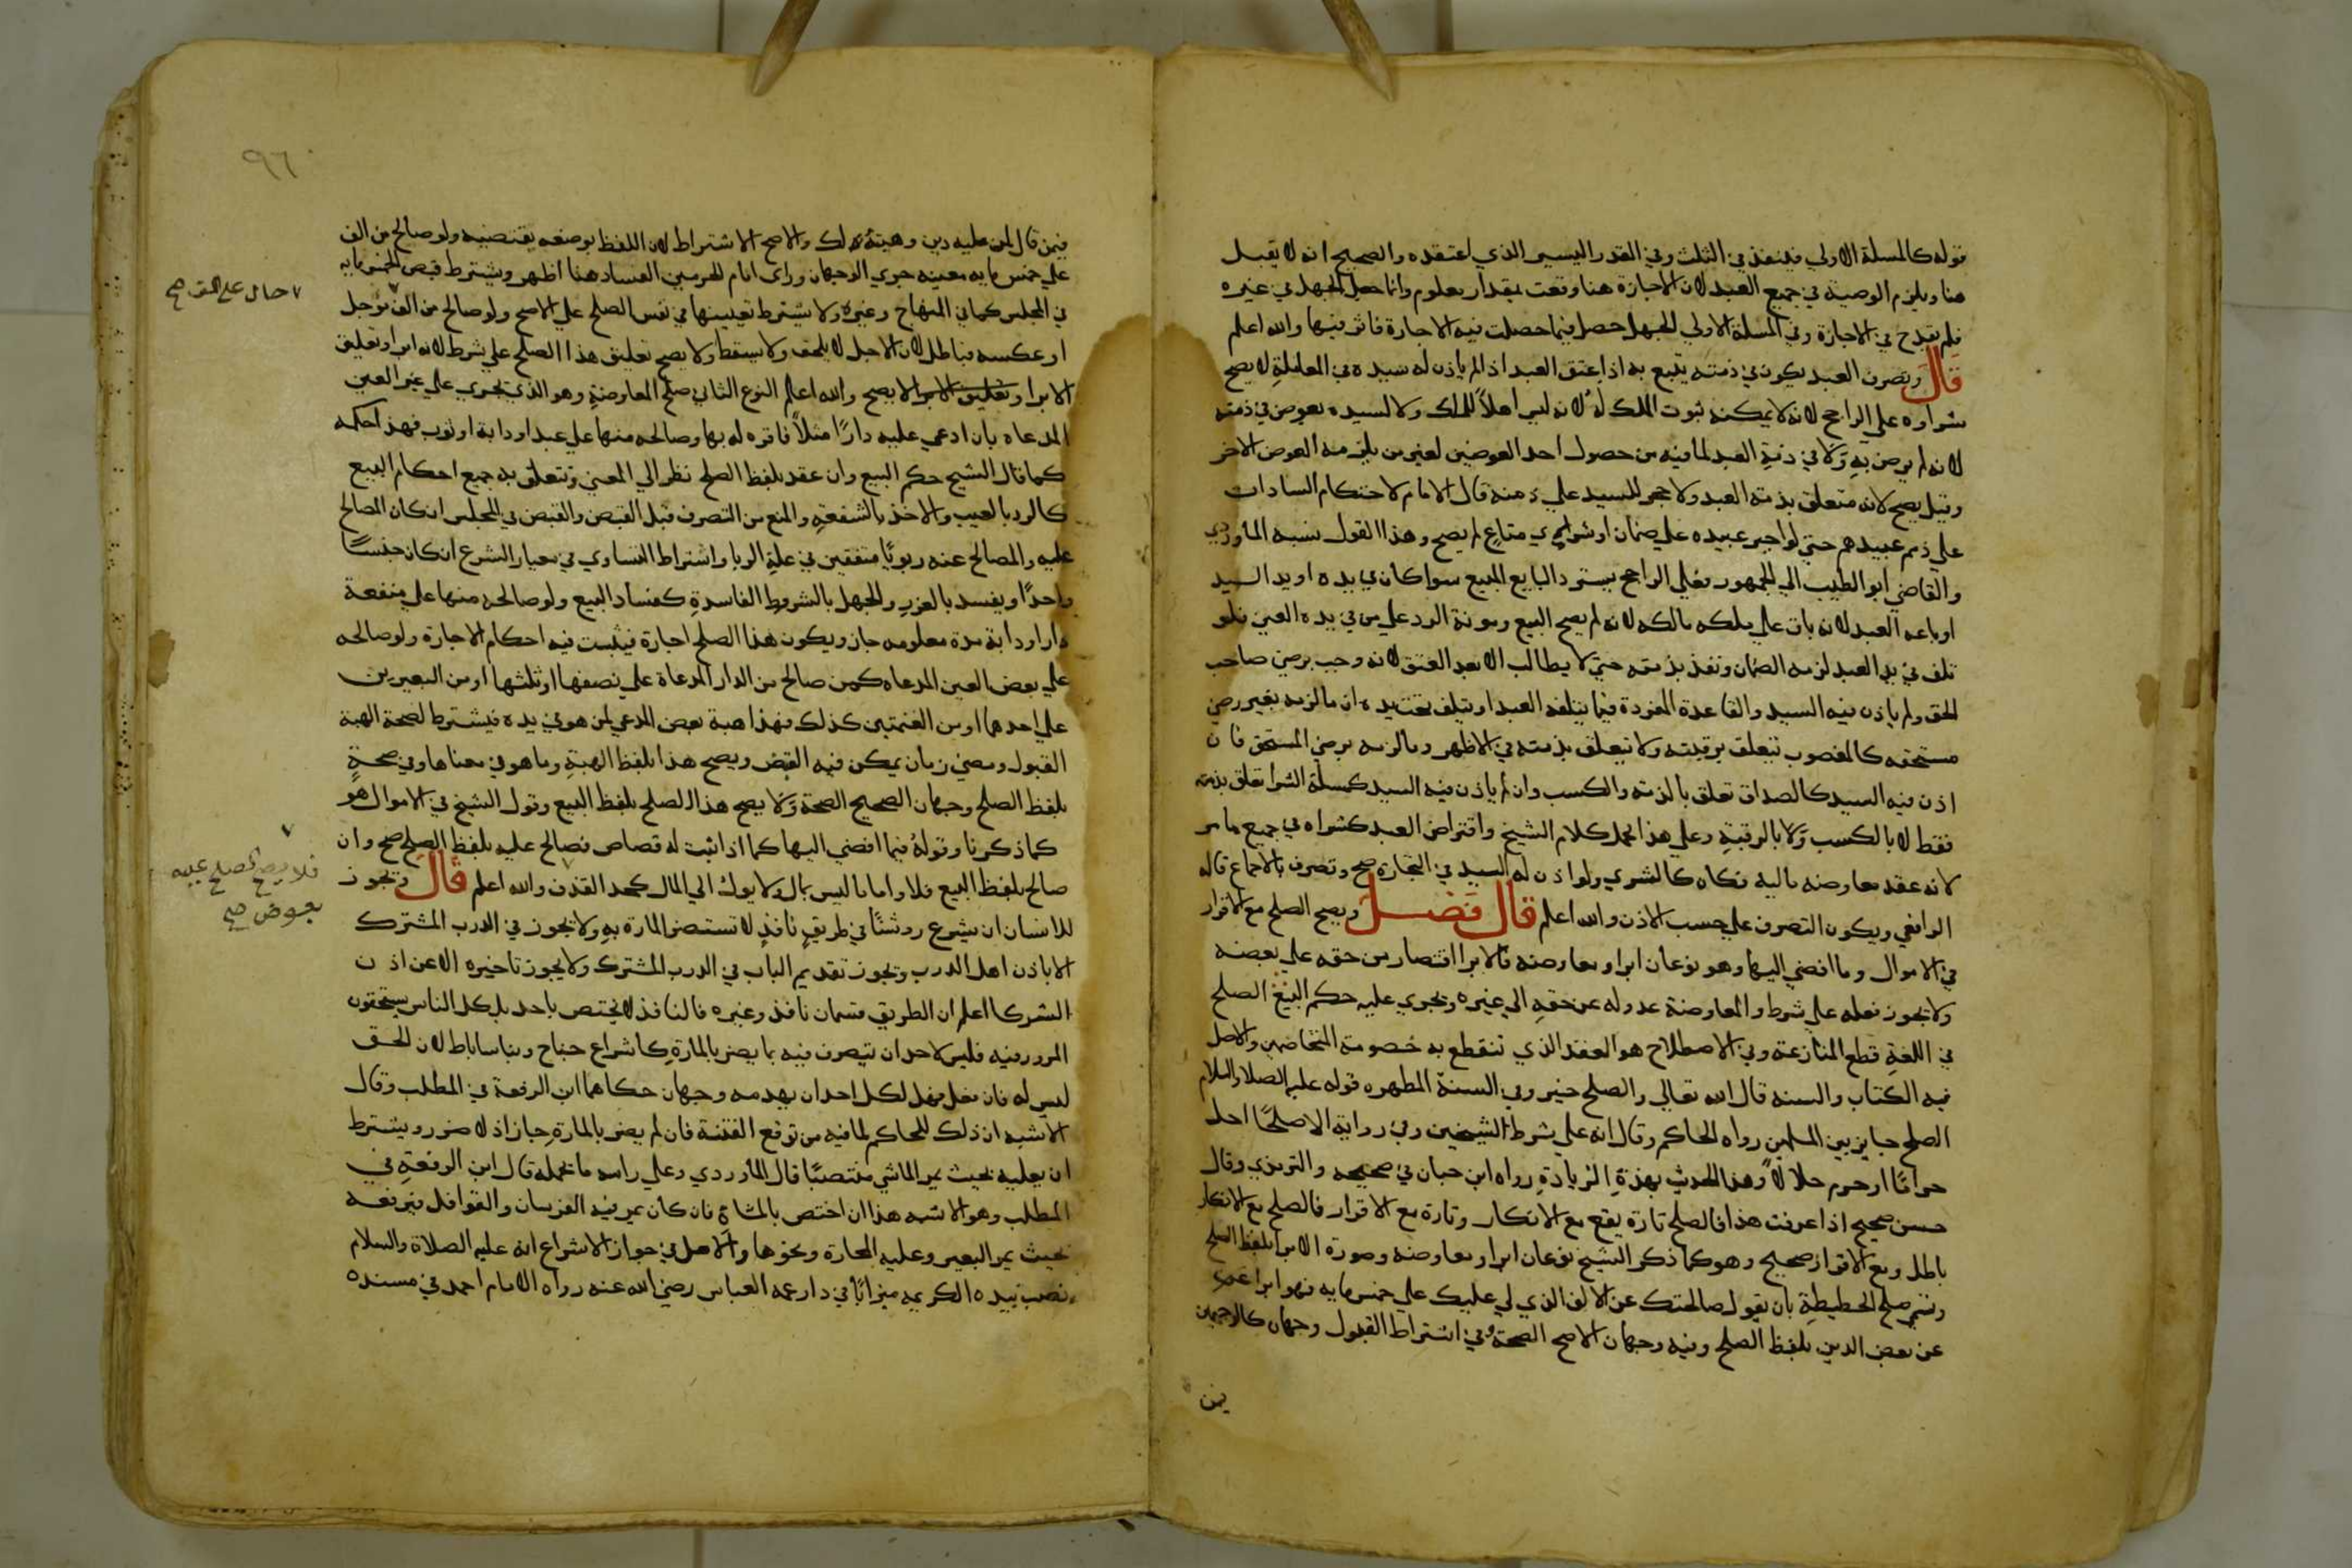 قوله كالمسلة الاولي فينفذ في الثلث وفي القدر اليسير الذي اعتقده والصحيح انه لا يقبل
هنا ويلزم الوصية في جميع العبد لان الاجازة هنا وقعت بمقدار معلوم وانما حصل الجهل في غيره
فلم يقدح في الاجازة وفي المسلة الاولي الجهل حصل فيما حصلت فيه الاجازة فاثر فيها والله اعلم
قال وتصرف العبد يكون في ذمته يتبع به اذا عتق العبد اذا لم ياذن له سيده في المعاملة لا يصح
شراوه علي الراجح لانه لا يمكنه ثبوت الملك له لانه ليس اهلاً للملك ولا لسيده بعوض في ذمته
لانه لم يرض به ولا في ذمة العبد لما فيه من حصول احد العوضين لغير من يلزمه العوض الاخر
وقيل يصح لانه متعلق بذمته العبد ولا حجر للسيد علي ذمته قال الامام لا احتكام السادات
علي ذمم عبيدهم حتي لو اجبر عبيده علي ضمان او شراي متاع لم يصح وهذا القول نسبه الماوردي
والقاضي ابو الطيب الي الجمهور فعلي الراجح يسترد البايع المبيع سوا كان في يده او يد السيد
اوباعه العبد لانه باق علي ملكه مالكه لانه لم يصح البيع ومونة الرد علي من في يده العين فلو
تلف في يد العبد لزمه الضمان ونفذ بذمته حتي لا يطالب الا بعد العتق لانه وجب برضي صاحب
الحق ولم ياذن فيه السيد والقاعدة المعزودة فيما يتلفه العبد او يتلف تحت يده ان ما لزمه بغير رضي
مستحقه كالمغصوب يتعلق برقبته ولا يتعلق بذمته في الاظهر وما لزمه برضي المستحق فان
اذن فيه السيد كالصداق تعلق بالذمته والكسب وان لم ياذن فيه السيد كمسلة الشرا تعلق بذمته
فقط لا بالكسب ولا بالرقبة وعلي هذا يحمل كلام الشيخ واقتراض العبد كشراه في جميع ما مر
لانه عقد معاوضه ماليه فكان كالشري ولو اذن له السيد في التجارة صح وتصرف بالاجماع قاله
الرافعي ويكون التصرف علي حسب الاذن والله اعلم قال فصل ويصح الصلح مع الاقرار
في الاموال وما افضي اليها وهو نوعان ابرا ومعاوضه فالابرا اقتصار من حقه علي بعضه
ولا يجوز فعله علي شرط والمعاوضة عدوله عن حقه الي غيره ويجري عليه حكم البيع الصلح
في اللغة قطع المنازعة وفي الاصطلاح هو العقد الذي تنقطع به خصومة المتخاصمين والاصل
فيه الكتاب والسنه قال الله تعالي والصلح خير وفي السنة المطهره قوله عليه الصلاة والسلام
الصلح جايز بين المسلمين رواه الحاكم وقال انه علي شرط الشيخين وفي رواية الا صلحًا احل
حرامًا او حرم حلالاً وهذا الحديث بهذه الزيادة رواه ابن حبان في صحيحه والترمذي وقال
حسن صحيح اذا عرفت هذا فالصلح تارة يقع مع الانكار وتارة مع الاقرار فالصلح مع الانكار
باطل ومع الاقرار صحيح وهو كما ذكر الشيخ نوعان ابرا ومعاوضه وصورة الابرا بلفظ الصلح
وسمي صلح الحطيطة بان يقول صالحتك عن الالف الذي لي عليك علي خمس مايه فهو ابرا
عن بعض الدين بلفظ الصلح وفيه وجهان الاصح الصحة وفي اشتراط القبول وجهان كالوجهين
فيمن
٩٦
فيمن قال لمن عليه دين وهبته لك والاصح الاشتراط لان اللفظ بوضعه يقتضيه ولو صالح من الف
علي خمس مايه معينه جري الوجهان وراى امام الحرمين الفساد هنا اظهر ويشترط قبض الخمس مايه
في المجلس كما في المنهاج وغيره ولا يشترط تعيينها في نفس الصلح علي الاصح ولو صالح من الف موجل
حال علي الف صح
او عكسه فباطل لان الاجل لا يلحق ولا يسقط ولا يصح تعليق هذا الصلح علي شرط لانه ابرا وتعليق
الابرا وتعليق الابرا لا يصح والله اعلم النوع الثاني صلح المعاوضة وهو الذي يجري علي غير العين
المدعاه بان ادعي عليه دارًا مثلاً فاقر له بها وصالحه منها علي عبد او دابة او ثوب فهذا حكمه
كما قال الشيخ حكم البيع وان عقد بلفظ الصلح نظر الي المعني وتتعلق به جميع احكام البيع
كالرد بالعيب والاخذ بالشفعة والمنع من التصرف قبل القبض والقبض في المجلس ان كان المصالح
عليه والمصالح عنه ربويًا متفقين في علة الربا واشتراط التساوي في معيار الشرع ان كان جنسًا
واحدًا ويفسد بالغرر والجهل بالشروط الفاسدة كفساد البيع ولو صالحه منها علي منفعة
دار او دابة مدة معلومه جاز ويكون هذا الصلح اجارة فيثبت فيه احكام الاجارة ولو صالحه
علي بعض العين المدعاه كمن صالح من الدار المدعاة علي نصفها او ثلثها او من البعيرين
علي احدهما او من الغنمتين كذلك فهذا هبة بعض المدعي لمن هو في يده فيشترط لصحة الهبة
القبول ومضي زمان يمكن فيه القبض ويصح هذا بلفظ الهبة وما هو في معناها وفي صحة
بلفظ الصلح وجهان الصحيح الصحة ولا يصح هذا الصلح بلفظ البيع وقول الشيخ في الاموال هو
كما ذكرنا وقوله فيما افضي اليها كما اذا ثبت له قصاص فصالح عليه بلفظ الصلح صح وان
صالح بلفظ البيع فلا واما ما ليس بمال ولا يوك الي المال كحد القذف والله اعلم قال ويجوز
فلا يصح الصلح عليه
بعوض صح
للانسان ان يشرع روشنًا في طريق نافذ لا تستضر المارة به ولا يجوز في الدرب المشترك
الا باذن اهل الدرب ويجوز تقديم الباب في الدرب المشترك ولا يجوز تاخيره الا عن اذن
الشركا اعلم ان الطريق قسمان نافذ وغيره فالنافذ لا يختص باحد بل كل الناس يستحقون
المرور فيه فليس لاحد ان يتصرف فيه بما يضر بالمارة كاشراع جناح وبنا ساباط لان الحق
ليس له فان فعل فهل لكل احد ان يهدمه وجهان حكاهما ابن الرفعة في المطلب وقال
الاشبه ان ذلك للحاكم لما فيه من توقع الفتنة فان لم يضر بالمارة جاز اذ لا ضرر ويشترط
ان يعليه بحيث يمر الماشي منتصبًا قال الماوردي وعلي راسه ما يحمله قال ابن الرفعة في
المطلب وهو الاشبه هذا ان اختص بالمشاة فان كان يمر فيه الفرسان والقوافل فيرفعه
بحيث يمر البعير وعليه المحارة ونحوها والاصل في جواز الاشراع انه عليه الصلاة والسلام
نصب بيده الكريمه ميزابًا في دار عمه العباس رضي الله عنه رواه الامام احمد في مسنده